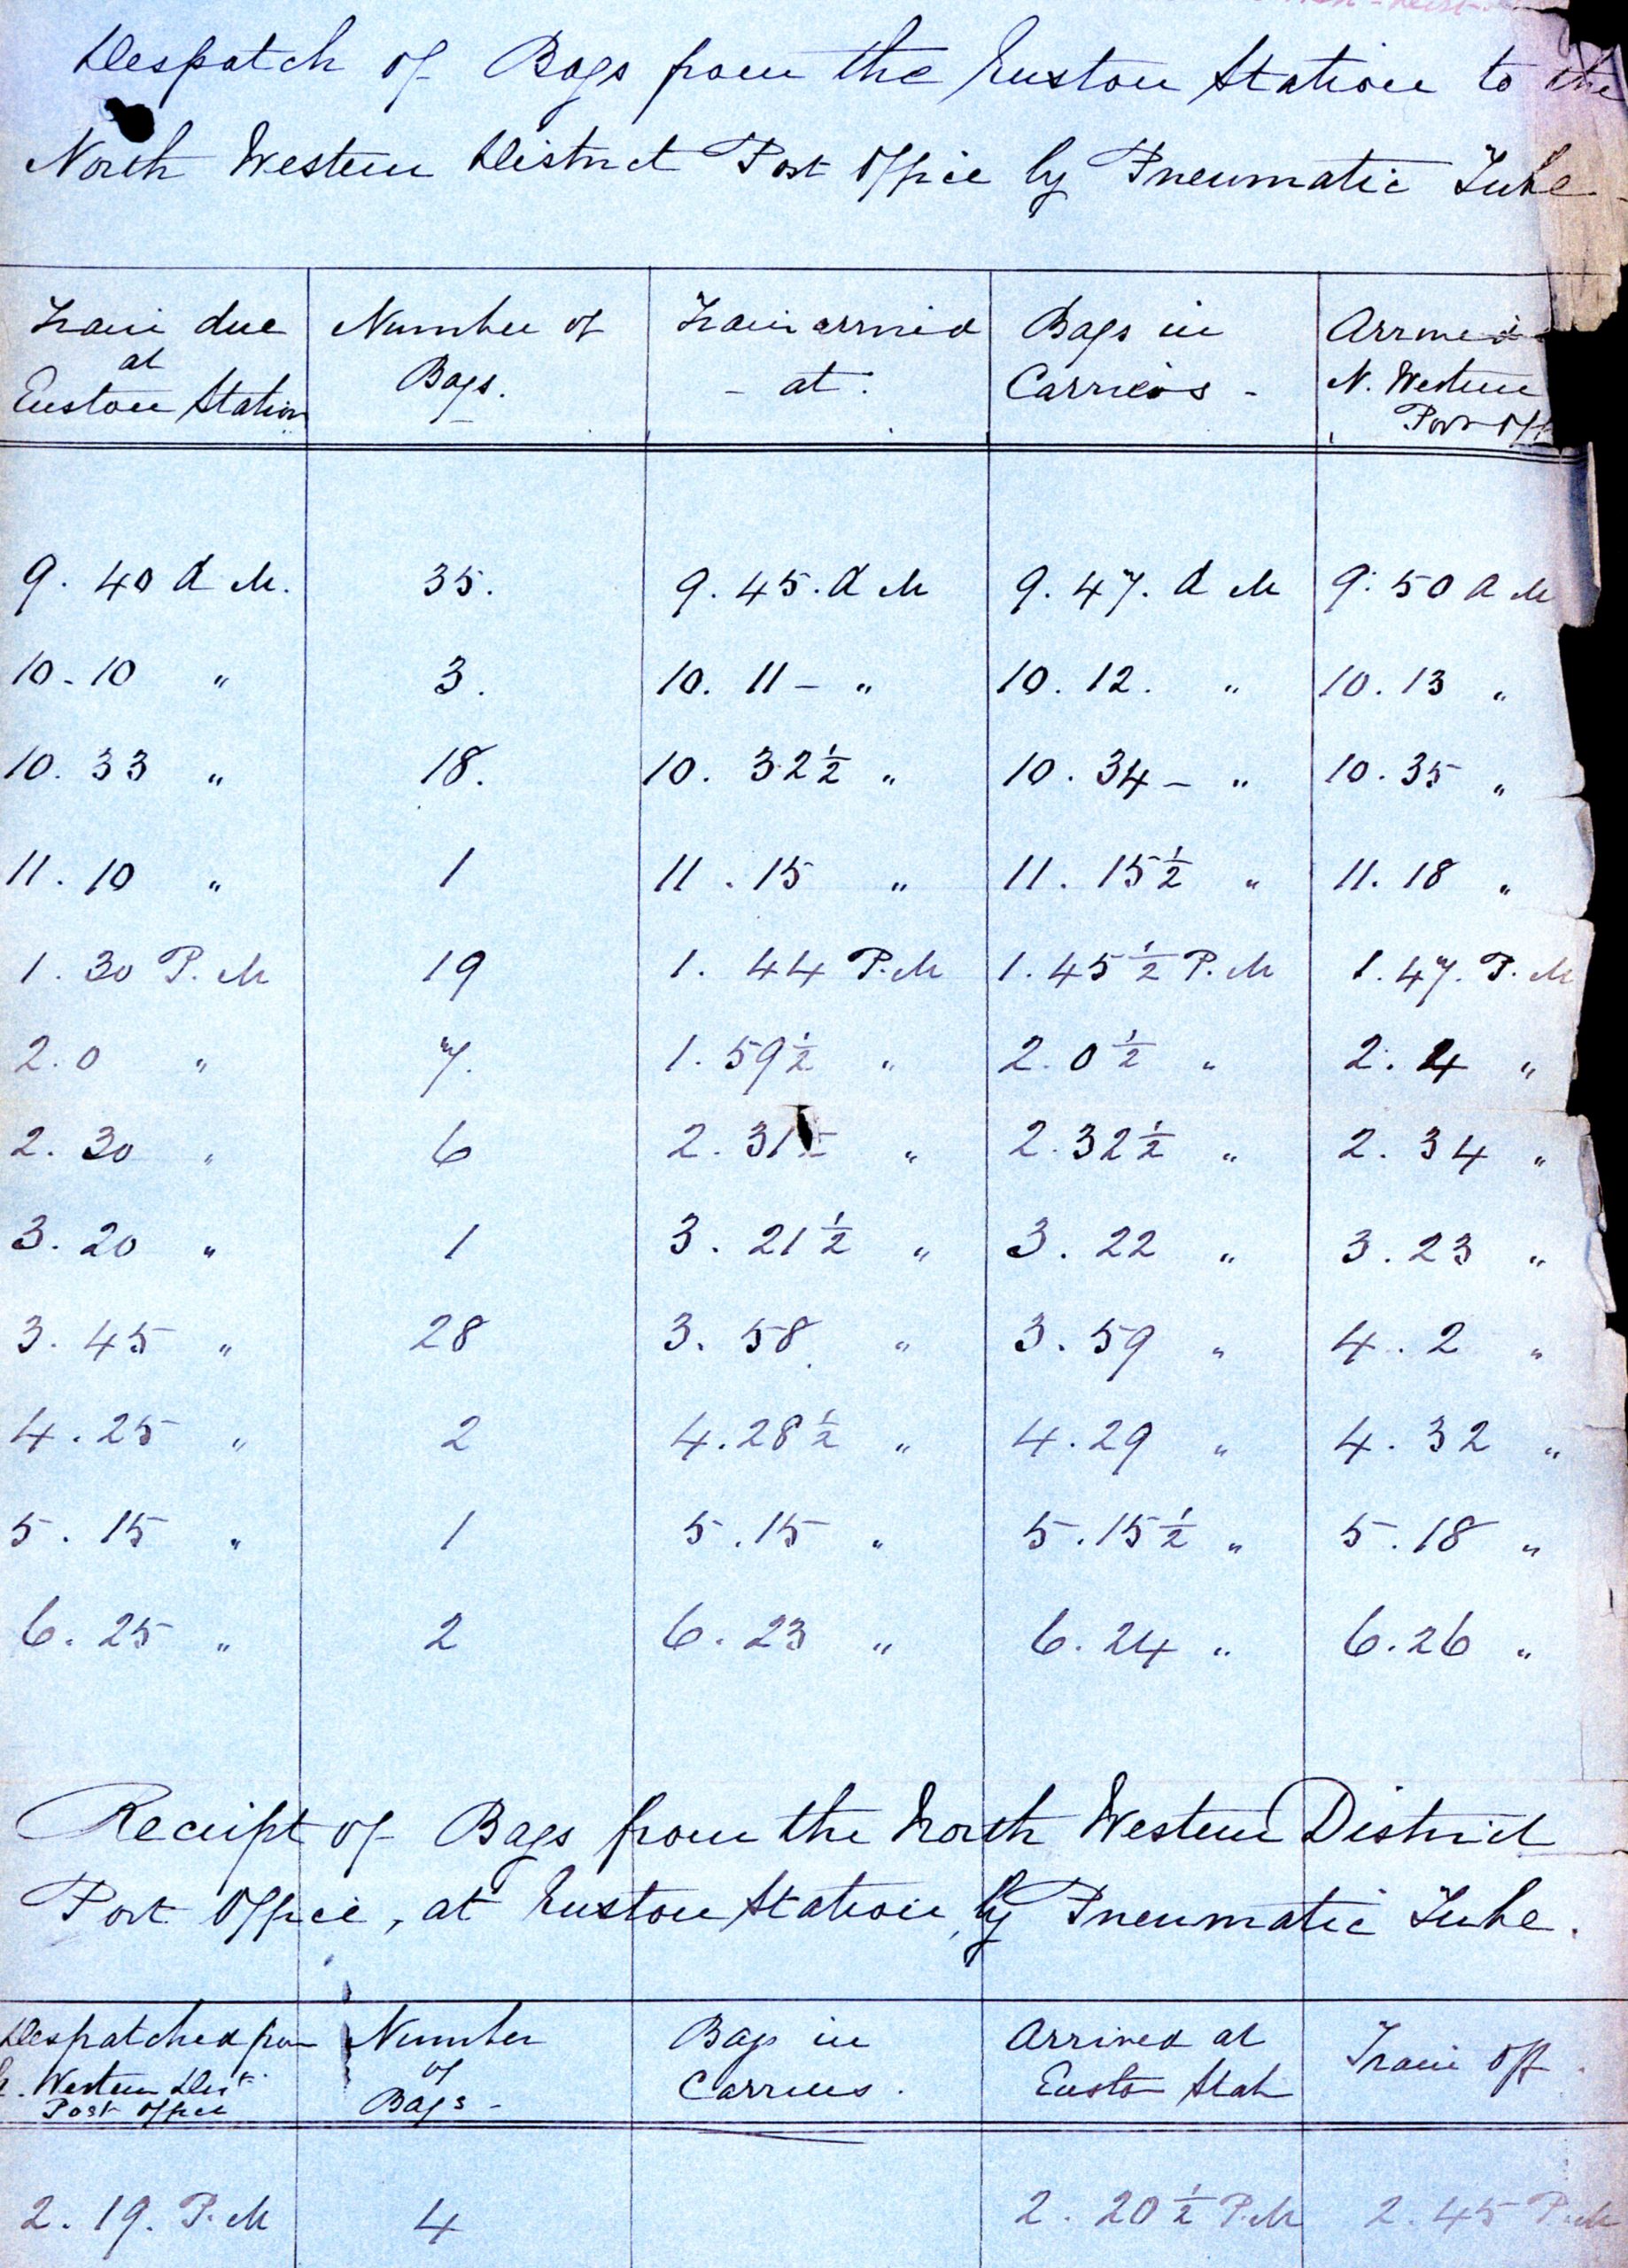 Despatch of Bags from the Euston Station to the
North Western District Post Office by Pneumatic Tube
Train due at Euston Station | Number of Bags. | Train arrived - at. | Bags in Carriers - | Arrived N. Western Post Off
9. 40 A M. | 35. | 9. 45. A M | 9. 47. A M | 9. 50 A M
10-10 " | 3. | 10. 11 - " | 10. 12. " | 10. 13 "
10. 33 " | 18. | 10. 32½ " | 10. 34 - " | 10. 35 "
11. 10 " | 1 | 11. 15 " | 11. 15½ " | 11. 18 "
1. 30 P. M | 19 | 1. 44 P.M | 1. 45½ P. M | 1. 47. P. M
2. 0 " | 7. | 1. 59½ " | 2. 0½ " | 2. 4 "
2. 30 " | 6 | 2. 31 " | 2. 32½ " | 2. 34 "
3. 20 " | 1 | 3. 21½ " | 3. 22 " | 3. 23 "
3. 45 " | 28 | 3. 58. " | 3. 59 " | 4. 2 "
4. 25 " | 2 | 4. 28½ " | 4. 29 " | 4. 32 "
5. 15 " | 1 | 5. 15 " | 5. 15½ " | 5. 18 "
6. 25 " | 2 | 6. 23 " | 6. 24 " | 6. 26 "
Receipt of Bags from the North Western District
Post Office, at Euston Station, by Pneumatic Tube.
Despatched from N. Western Dist. Post Office | Number of Bags - | Bags in Carriers. | Arrived at Eusto Stat | Train off.
2. 19. P. M | 4 | | 2. 20½ P.M | 2. 45 P.M